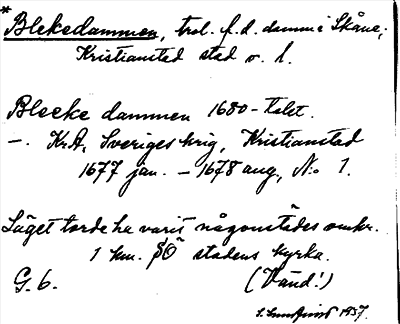 * Blekedammen, trol. f.d. damm i Skåne,
Kristianstad stad o. l.
Bleeke dammen 1680-talet.
–. KrA, Sveriges krig, Kristianstad
1677 jan. – 1678 aug, No 1.
Läget torde ha varit någonstädes omkr.
1 km. SÖ stadens kyrka.
G. b. (Vänd!)
S. Sundqvist 1937.